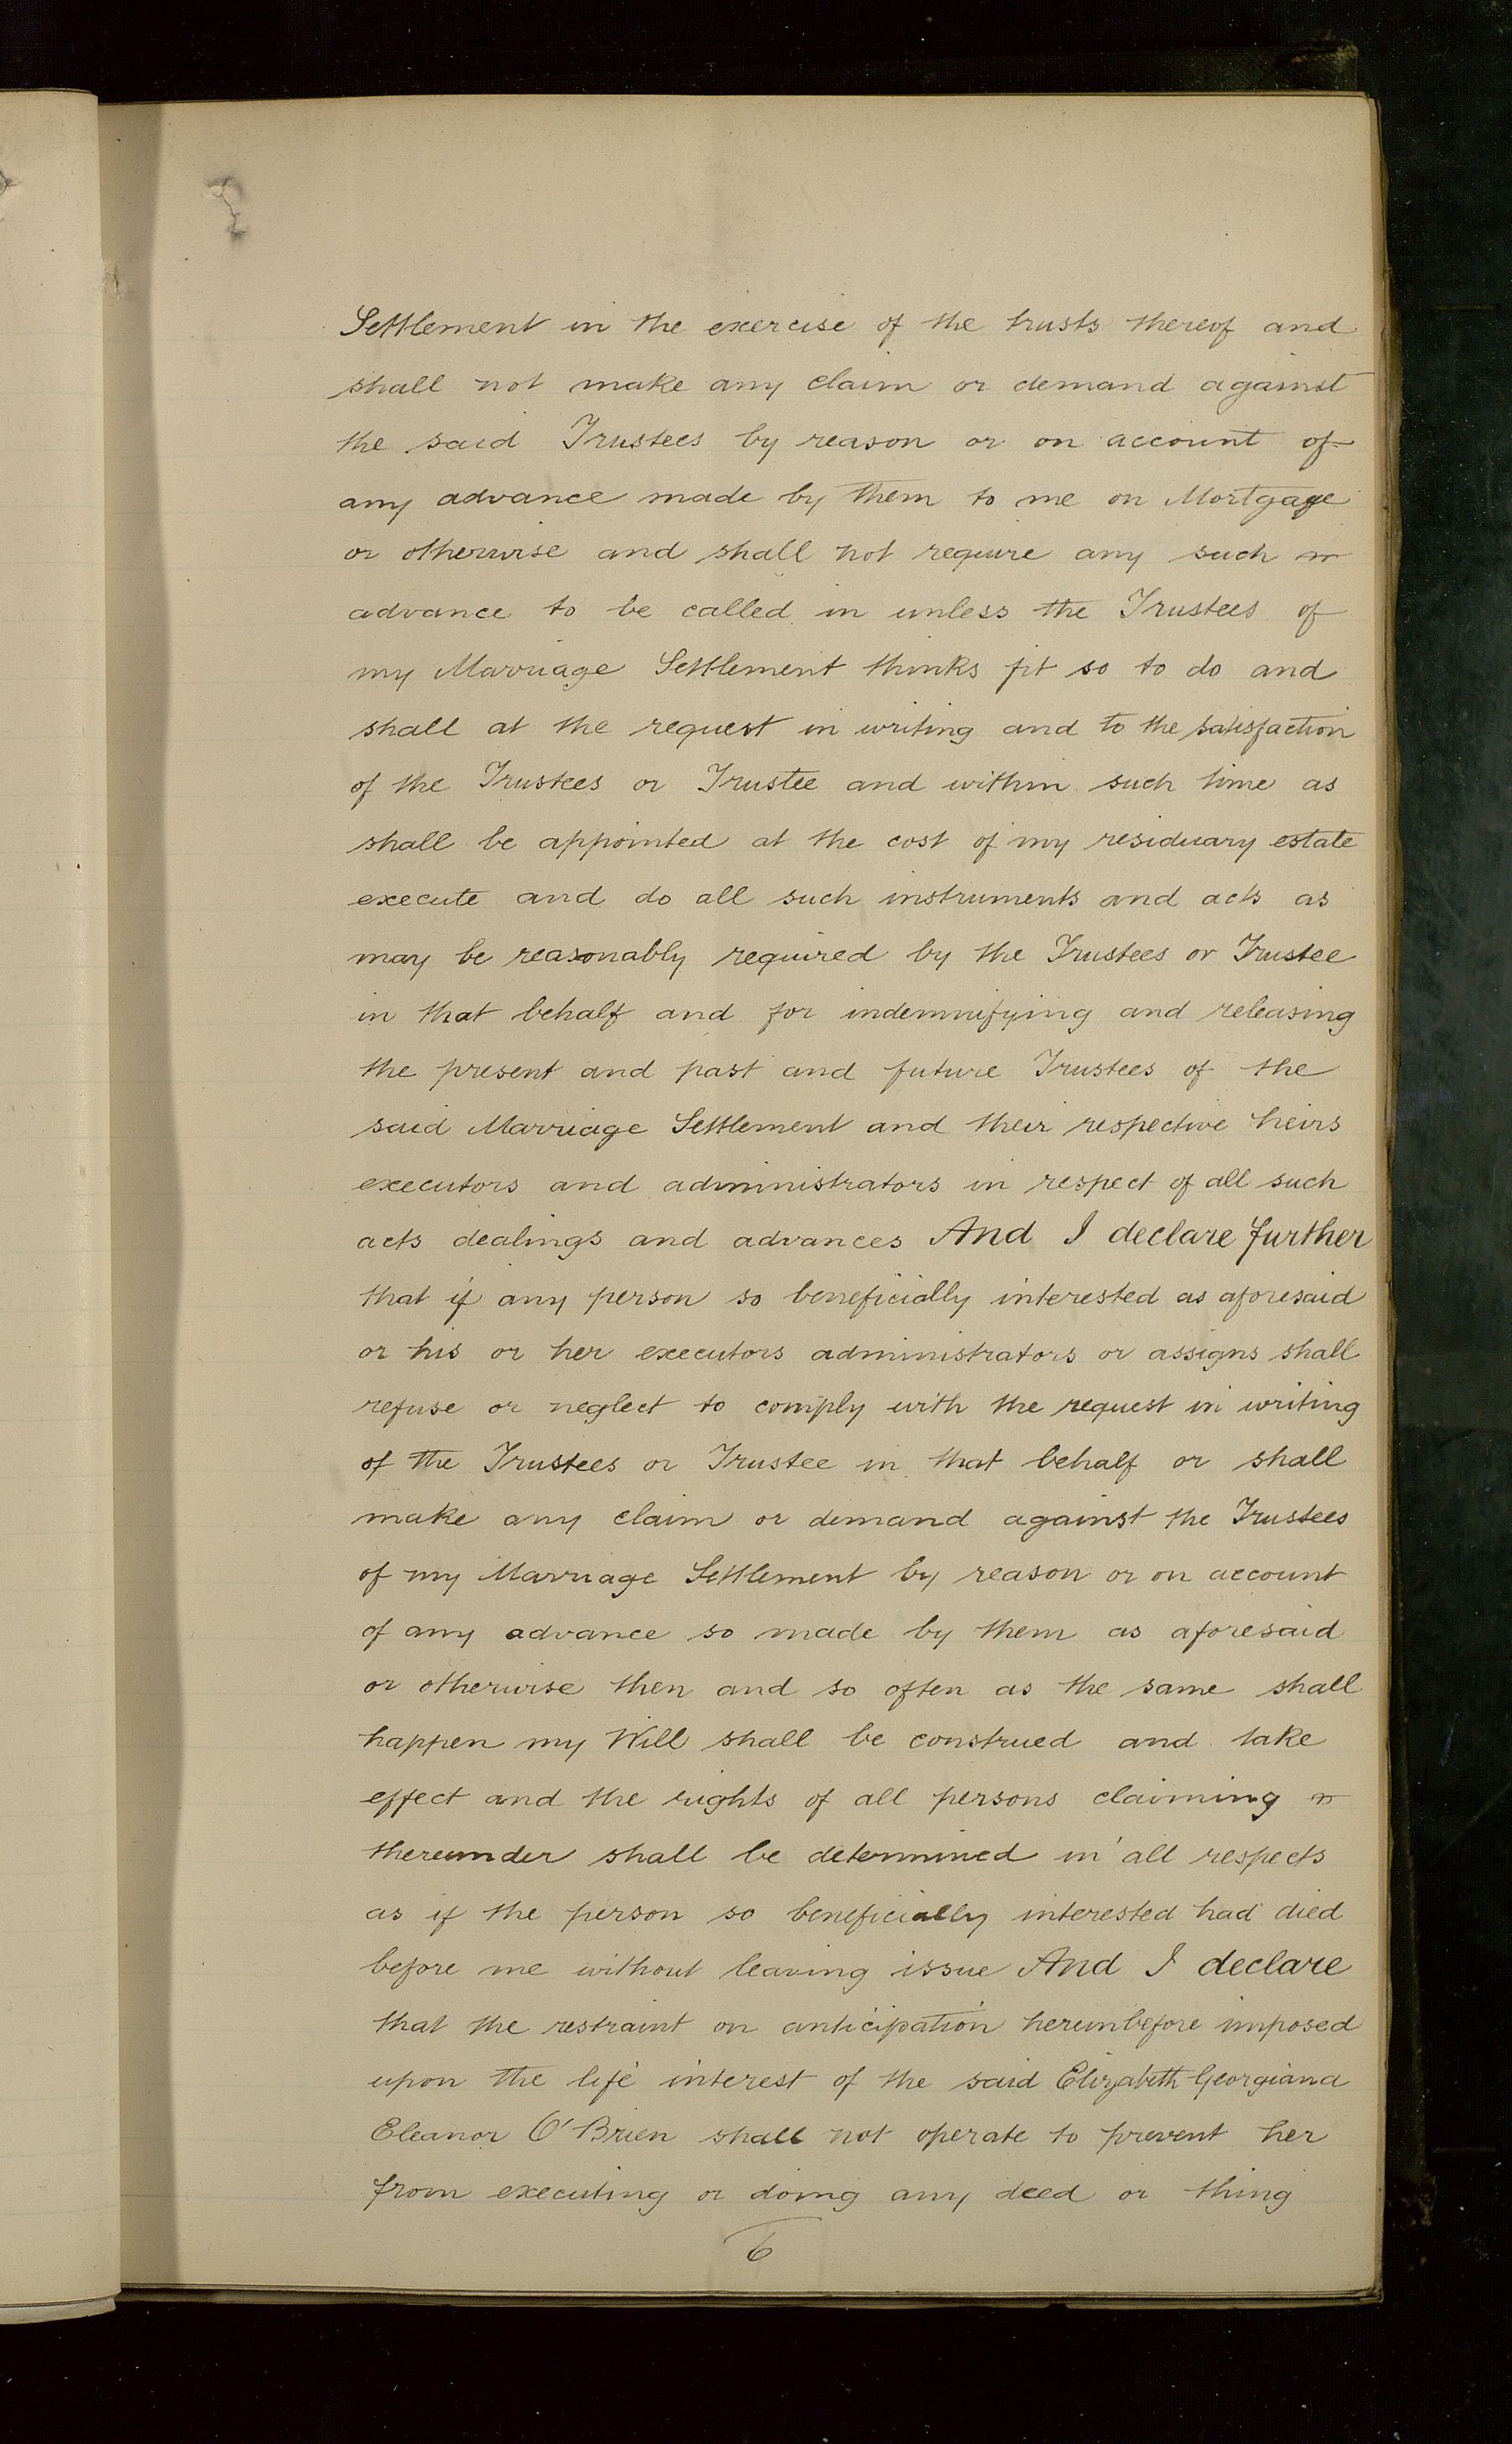 Settlement in the exercise of the trusts thereof and
shall not make any claim or demand against
the said Trustees by reason or on account of
any advance made by them to me on Mortgage
or otherwise and shall not require any such
advance to be called in unless the Trustees of
my Marriage Settlement thinks fit so to do and
shall at the request in writing and to the satisfaction
of the Trustees or Trustee and within such time as
shall be appointed at the cost of my residuary estate
execute and do all such instruments and acts as
may be reasonably required by the Trustees or Trustee
in that behalf and for indemnifying and releasing
the present and past and future Trustees of the
said Marriage Settlement and their respective heirs
executors and administrators in respect of all such
acts dealings and advances And I declare further
that if any person so beneficially interested as aforesaid
or his or her executors administrators or assigns shall
refuse or neglect to comply with the request in writing
of the Trustees or Trustee in that behalf or shall
make any claim or demand against the Trustees
of my Marriage Settlement by reason or on account
of any advance so made by them as aforesaid
or otherwise then and so often as the same shall
happen my Will shall be construed and take
effect and the rights of all persons claiming
thereunder shall be determined in all respects
as if the person so beneficially interested had died
before me without leaving issue And I declare
that the restraint on anticipation hereinbefore imposed
upon the life interest of the said Elizabeth Georgiana
Eleanor O'Brien shall not operate to prevent her
from executing or doing any deed or thing
6